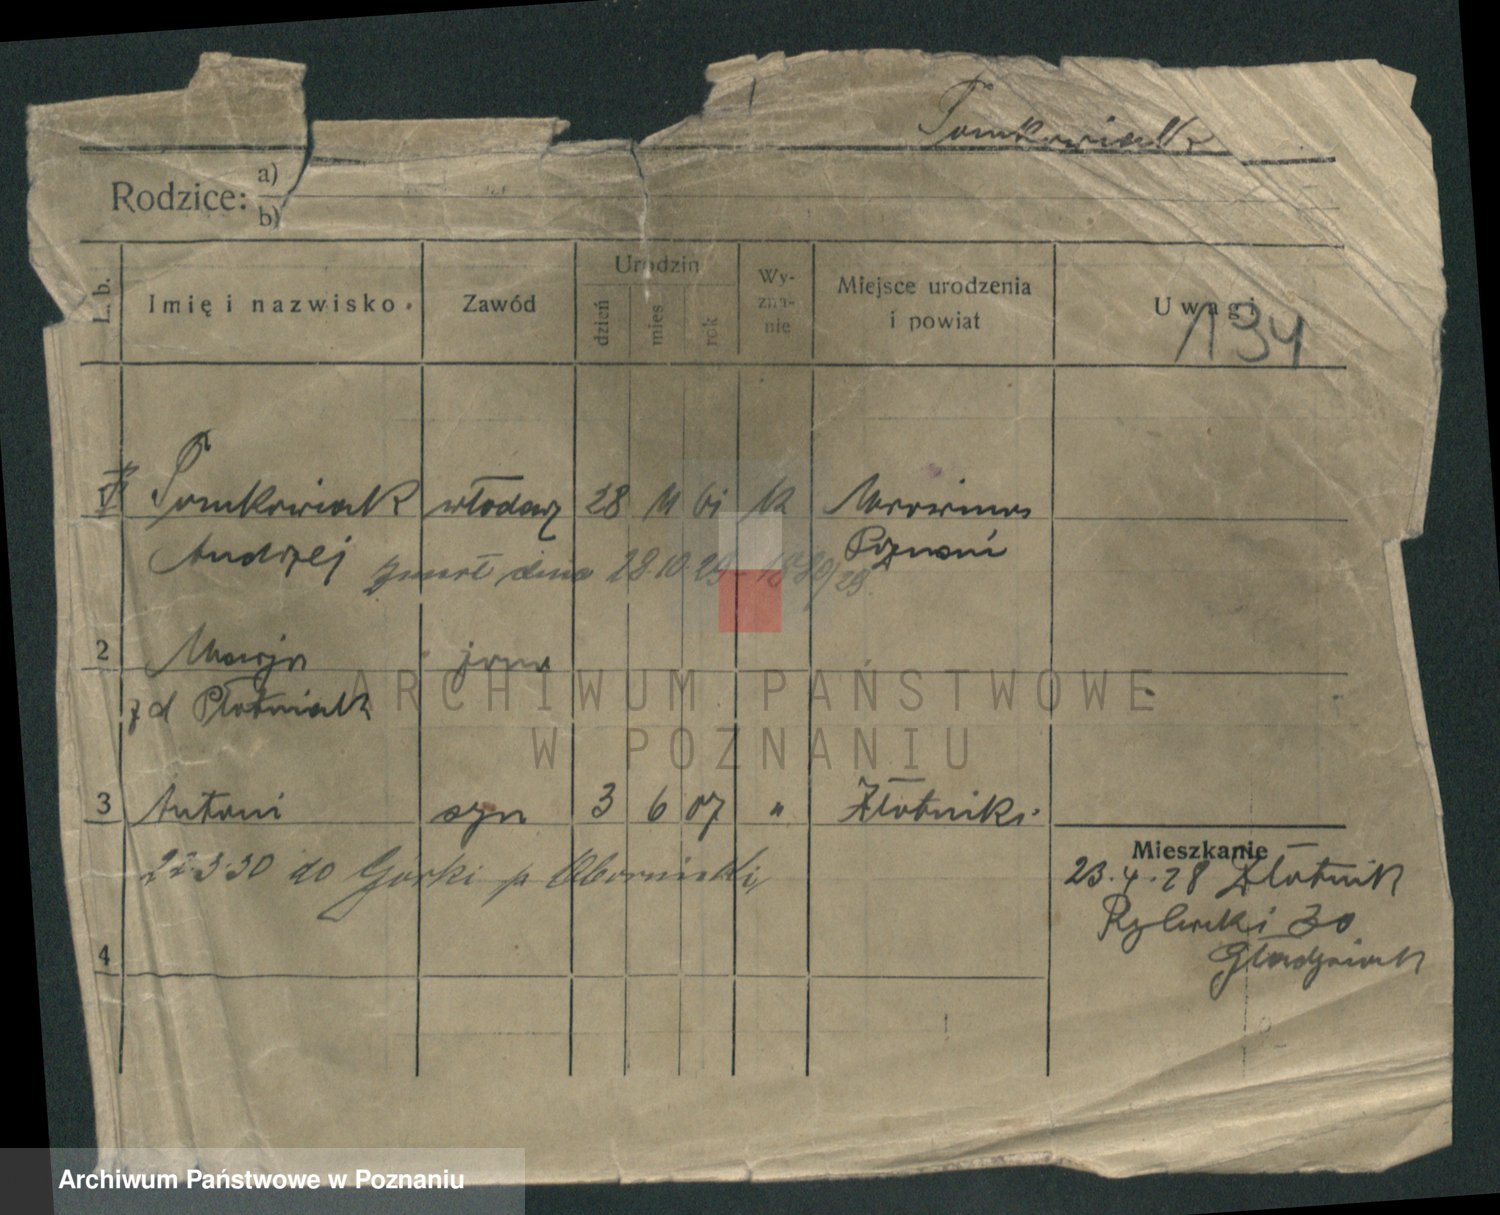 Tomkowiak
Rodzice: a)
b)
L. b.
Imię i nazwisko
Zawód
Urodzin
dzień
mies
rok
Wy-
zna-
nie
Miejsce urodzenia
i powiat
Uwagi
134
Tomkowiak włodarz 28 11 61 k Mrowino
Andrzej Poznań
zmarł dnia 28.10.29
2 Marja żona
z d Płotniak
3 Antoni syn 3 6 07 " Złotniki
22.3.30 do Górki p Obornicki
4
Mieszkanie
23.4.28 Złotnik
30
ARCHIWUM PAŃSTWOWE
W POZNANIU
Archiwum Państwowe w Poznaniu